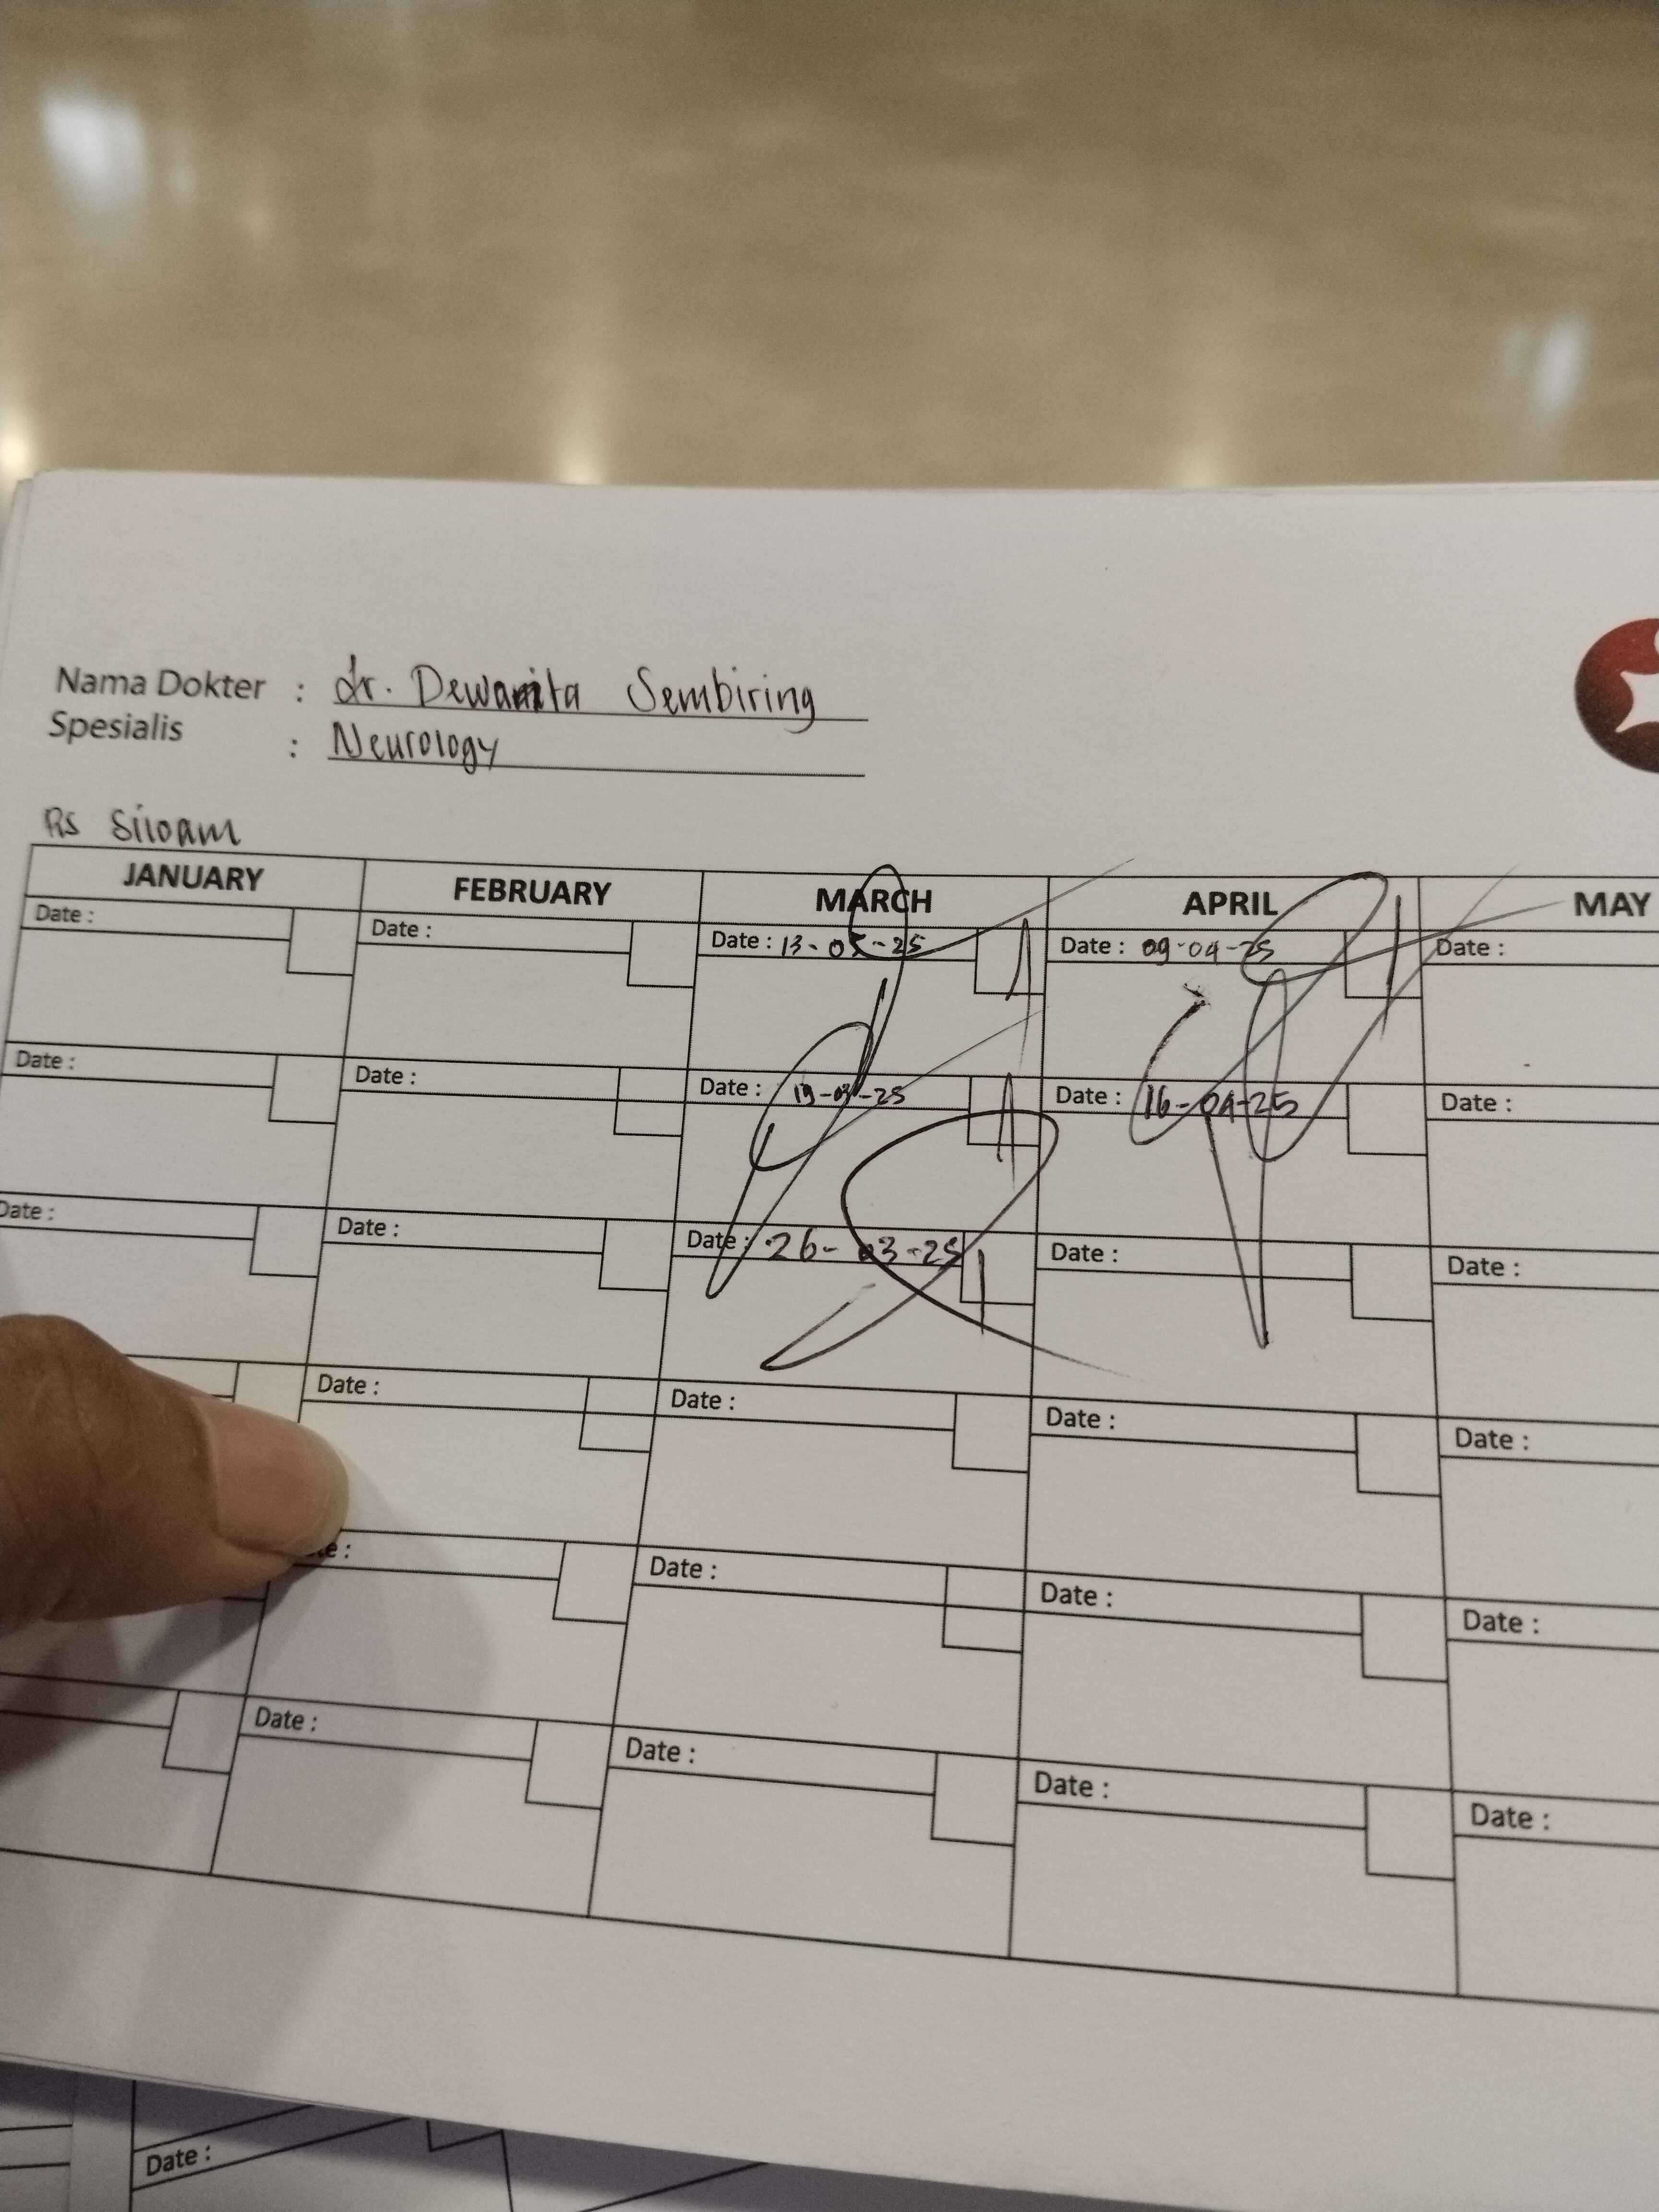 Nama Dokter : dr. Dewanita Sembiring
Spesialis : Neurology
RS Siloam
JANUARY FEBRUARY MARCH APRIL MAY
Date : Date : Date : 13-03-25 Date : 09-04-25 Date :
Date : Date : Date : 19-03-25 Date : 16-04-25 Date :
Date : Date : Date : 26-03-25 Date : Date :
Date : Date : Date : Date :
Date : Date : Date :
Date : Date : Date : Date :
Date :